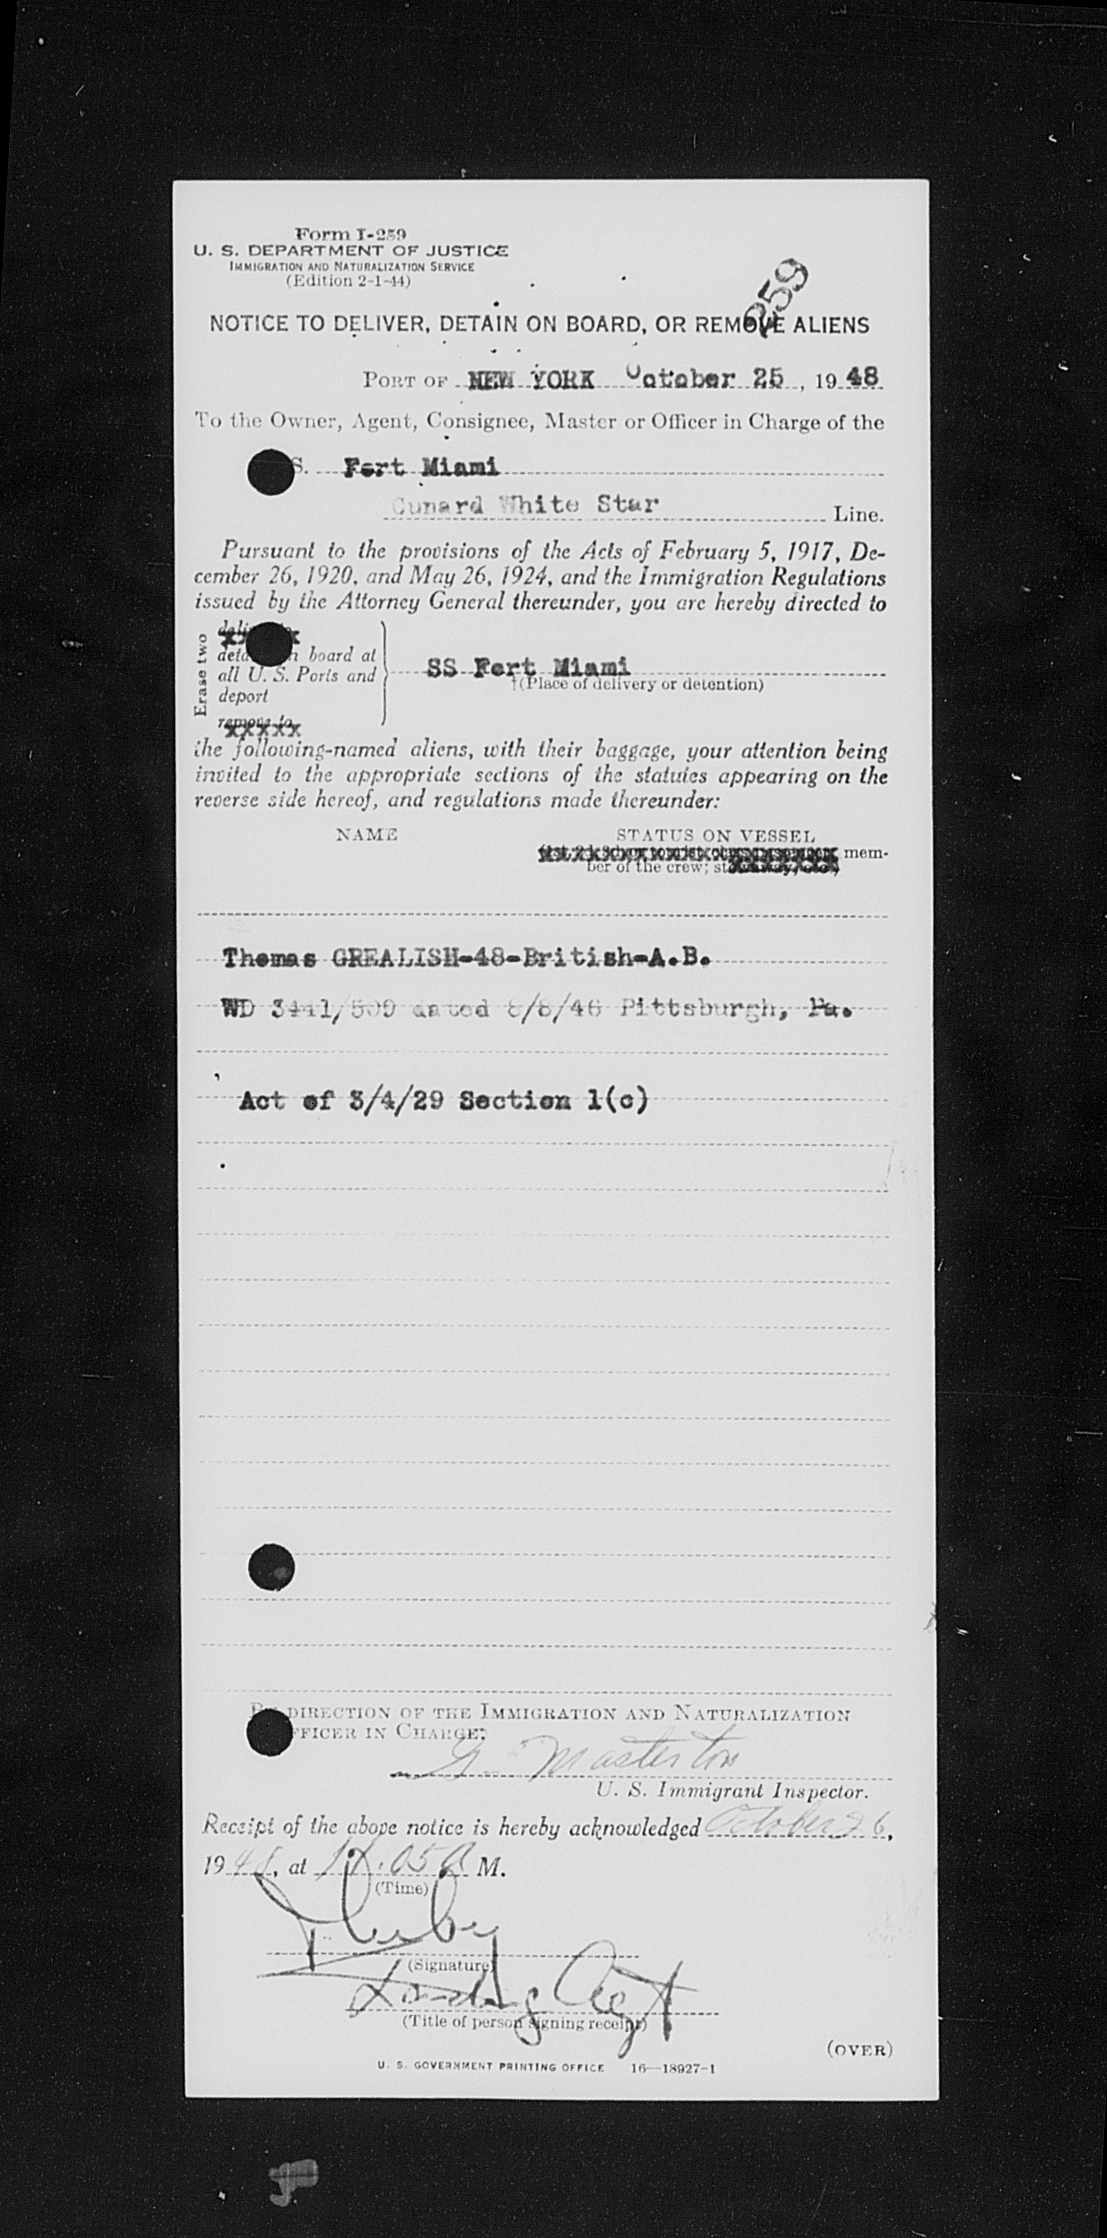 Form I-259
U. S. DEPARTMENT OF JUSTICE
IMMIGRATION AND NATURALIZATION SERVICE
(Edition 2-1-44)
259
NOTICE TO DELIVER, DETAIN ON BOARD, OR REMOVE ALIENS
PORT OF NEW YORK October 25, 1948
To the Owner, Agent, Consignee, Master or Officer in Charge of the
S. Fort Miami
Cunard White Star Line.
Pursuant to the provisions of the Acts of February 5, 1917, De-
cember 26, 1920, and May 26, 1924, and the Immigration Regulations
issued by the Attorney General thereunder, you are hereby directed to
Erase two
board at
all U. S. Ports and
deport
remove to
SS Fort Miami
†(Place of delivery or detention)
the following-named aliens, with their baggage, your attention being
invited to the appropriate sections of the statutes appearing on the
reverse side hereof, and regulations made thereunder:
NAME STATUS ON VESSEL
mem-
ber of the crew;
Thomas GREALISH-48-British-A.B.
WD dated Pittsburgh, Pa.
Act of 3/4/29 Section 1(c)
BY DIRECTION OF THE IMMIGRATION AND NATURALIZATION
OFFICER IN CHARGE:
Masterton
U. S. Immigrant Inspector.
Receipt of the above notice is hereby acknowledged October 26,
1948, at M.
(Time)
(Signature)
Agt
(Title of person signing receipt)
(OVER)
U. S. GOVERNMENT PRINTING OFFICE 16—18927-1